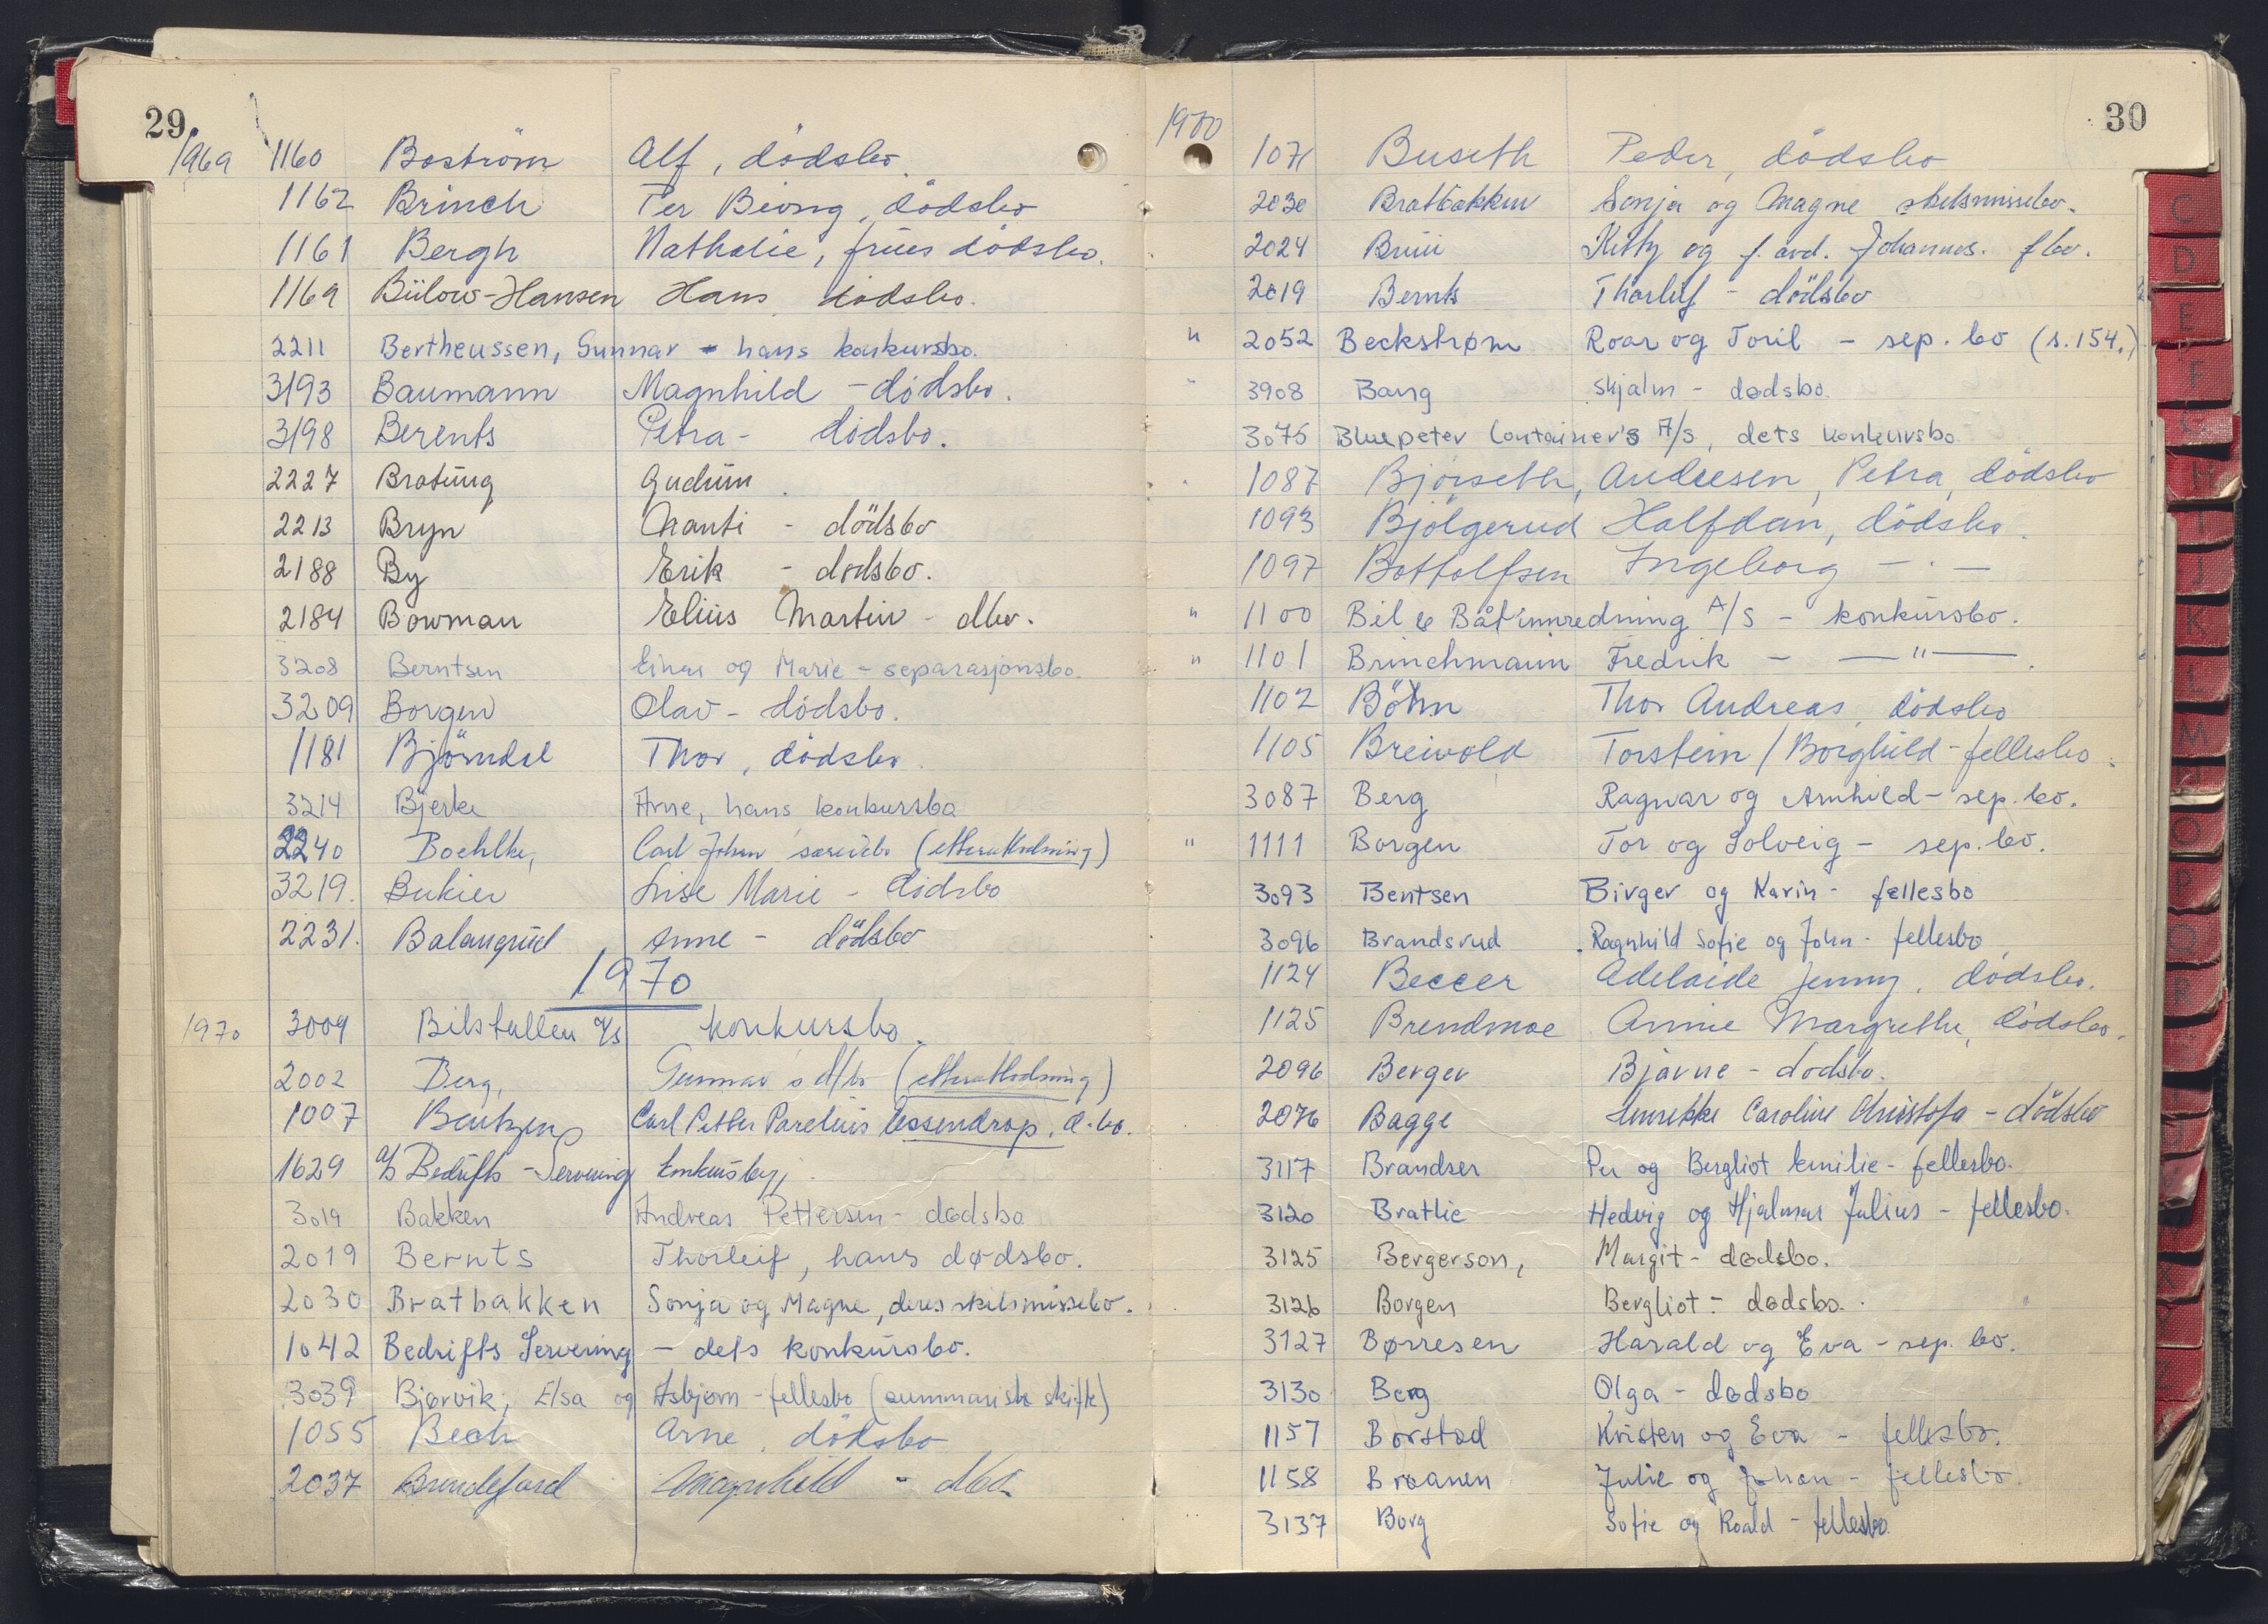 29
1969 1160 Boström Alf, dödsbo.
1162 Brinch Per Biong, dödsbo
1161 Bergh Nathalie, frues dödsbo.
1169 Bülow-Hansen Hans dödsbo.
2211 Bertheussen, Gunnar - hans konkursbo.
3193 Baumann Magnhild - dödsbo.
3198 Berents Petra - dödsbo.
2227 Bratung Gudrun
2213 Bryn Nanti - dödsbo
2188 By Erik - dødsbo.
2184 Bowman Elius Martin - dbo.
3208 Berntsen Einar og Marie - separasjonsbo.
3209 Borgen Olav - dödsbo.
1181 Björndal Thor, dödsbo
3214 Bjerke Arne, hans konkursbo
2240 Boehlke, Carl Johan (etterutlodning)
3219. Bukier Lise Marie - dödsbo
2231. Balangrud Anne - dödsbo
1970
1970 3009 Bilstallen A/s konkursbo.
2002 Berg, Gunnar s d/bo (etterutlodning)
1007 Bentzen Carl Petter Parelius Lessendrop, d.bo.
1629 A/S Bedrifts-Servering
3019 Bakken Andreas Pettersen - dødsbo
2019 Bernts Thorleif, hans dødsbo.
2030 Bratbakken Sonja og Magne, deres skilsmissebo.
1042 Bedrifts Servering - dets konkursbo.
3039 Bjørvik, Elsa og Asbjørn - fellesbo (summarisk skifte)
1055 Bech Arne, dödsbo
2037 Magnhild - dbo
30
1970
1071 Buseth Peder, dödsbo
2030 Bratbakken Sonja og Magne skilsmissebo.
2024 Bruu Kitty og f. avd. Johannes. fbo.
2019 Bernts Thorleif - dödsbo
" 2052 Beckstrøm Roar og Toril - sep. bo (s.154.)
" 3908 Bang Skjalm - dødsbo.
3075 Bluepeter Container's A/S, dets konkursbo
1087 Björseth, Andresen, Petra, dödsbo
1093 Bjölgerud Halfdan, dödsbo.
1097 Bottolfsen Ingeborg - . -
" 1100 Bil & Båtinnredning A/S - konkursbo.
" 1101 Brinchmann Fredrik - — " —.
1102 Böhm Thor Andreas, dödsbo
1105 Breivold Torstein / Borghild - fellesbo.
3087 Berg Ragnar og Arnhild - sep. bo.
" 1111 Borgen Tor og Solveig - sep. bo.
3093 Bentsen Birger og Karin - fellesbo
3096 Brandsrud Ragnhild Sofie og John - fellesbo
1124 Beccer Adelaide Jenny, dödsbo.
1125 Brendmoe Annie Margrethe, dödsbo.
2096 Berger Bjarne - dødsbo.
2076 Bagge Caroline Christofa - dödsbo
3117 Brandser Per og Bergliot Emilie - fellesbo.
3120 Bratlie Hedvig og Hjalmar Julius - fellesbo.
3125 Bergerson, Margit - dødsbo.
3126 Borgen Bergliot - dødsbo.
3127 Børresen Harald og Eva - sep. bo.
3130 Berg Olga - dødsbo
1157 Borstad Kristen og Eva - fellesbo.
1158 Braanen Julie og Johan - fellesbo.
3137 Borg Sofie og Roald - fellesbo
C
D
E
F
H
I
J
K
L
M
O
P
Q
R